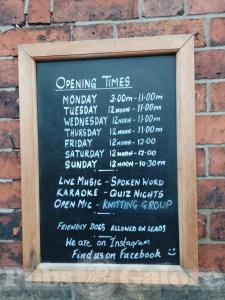 OPENING TIMES
MONDAY 3:00PM-11:00PM
TUESDAY 12NOON-11:00PM
WEDNESDAY 12NOON-11:00PM
THURSDAY 12NOON-11:00PM
FRIDAY 12NOON-12:00
SATURDAY 12NOON-12:00
SUNDAY 12NOON-10:30PM
LIVE MUSIC - SPOKEN WORD
KARAOKE - QUIZ NIGHTS
OPEN MIC - KNITTING GROUP
FRIENDLY DOGS ALLOWED ON LEADS
We are on Instagram
Find us on Facebook